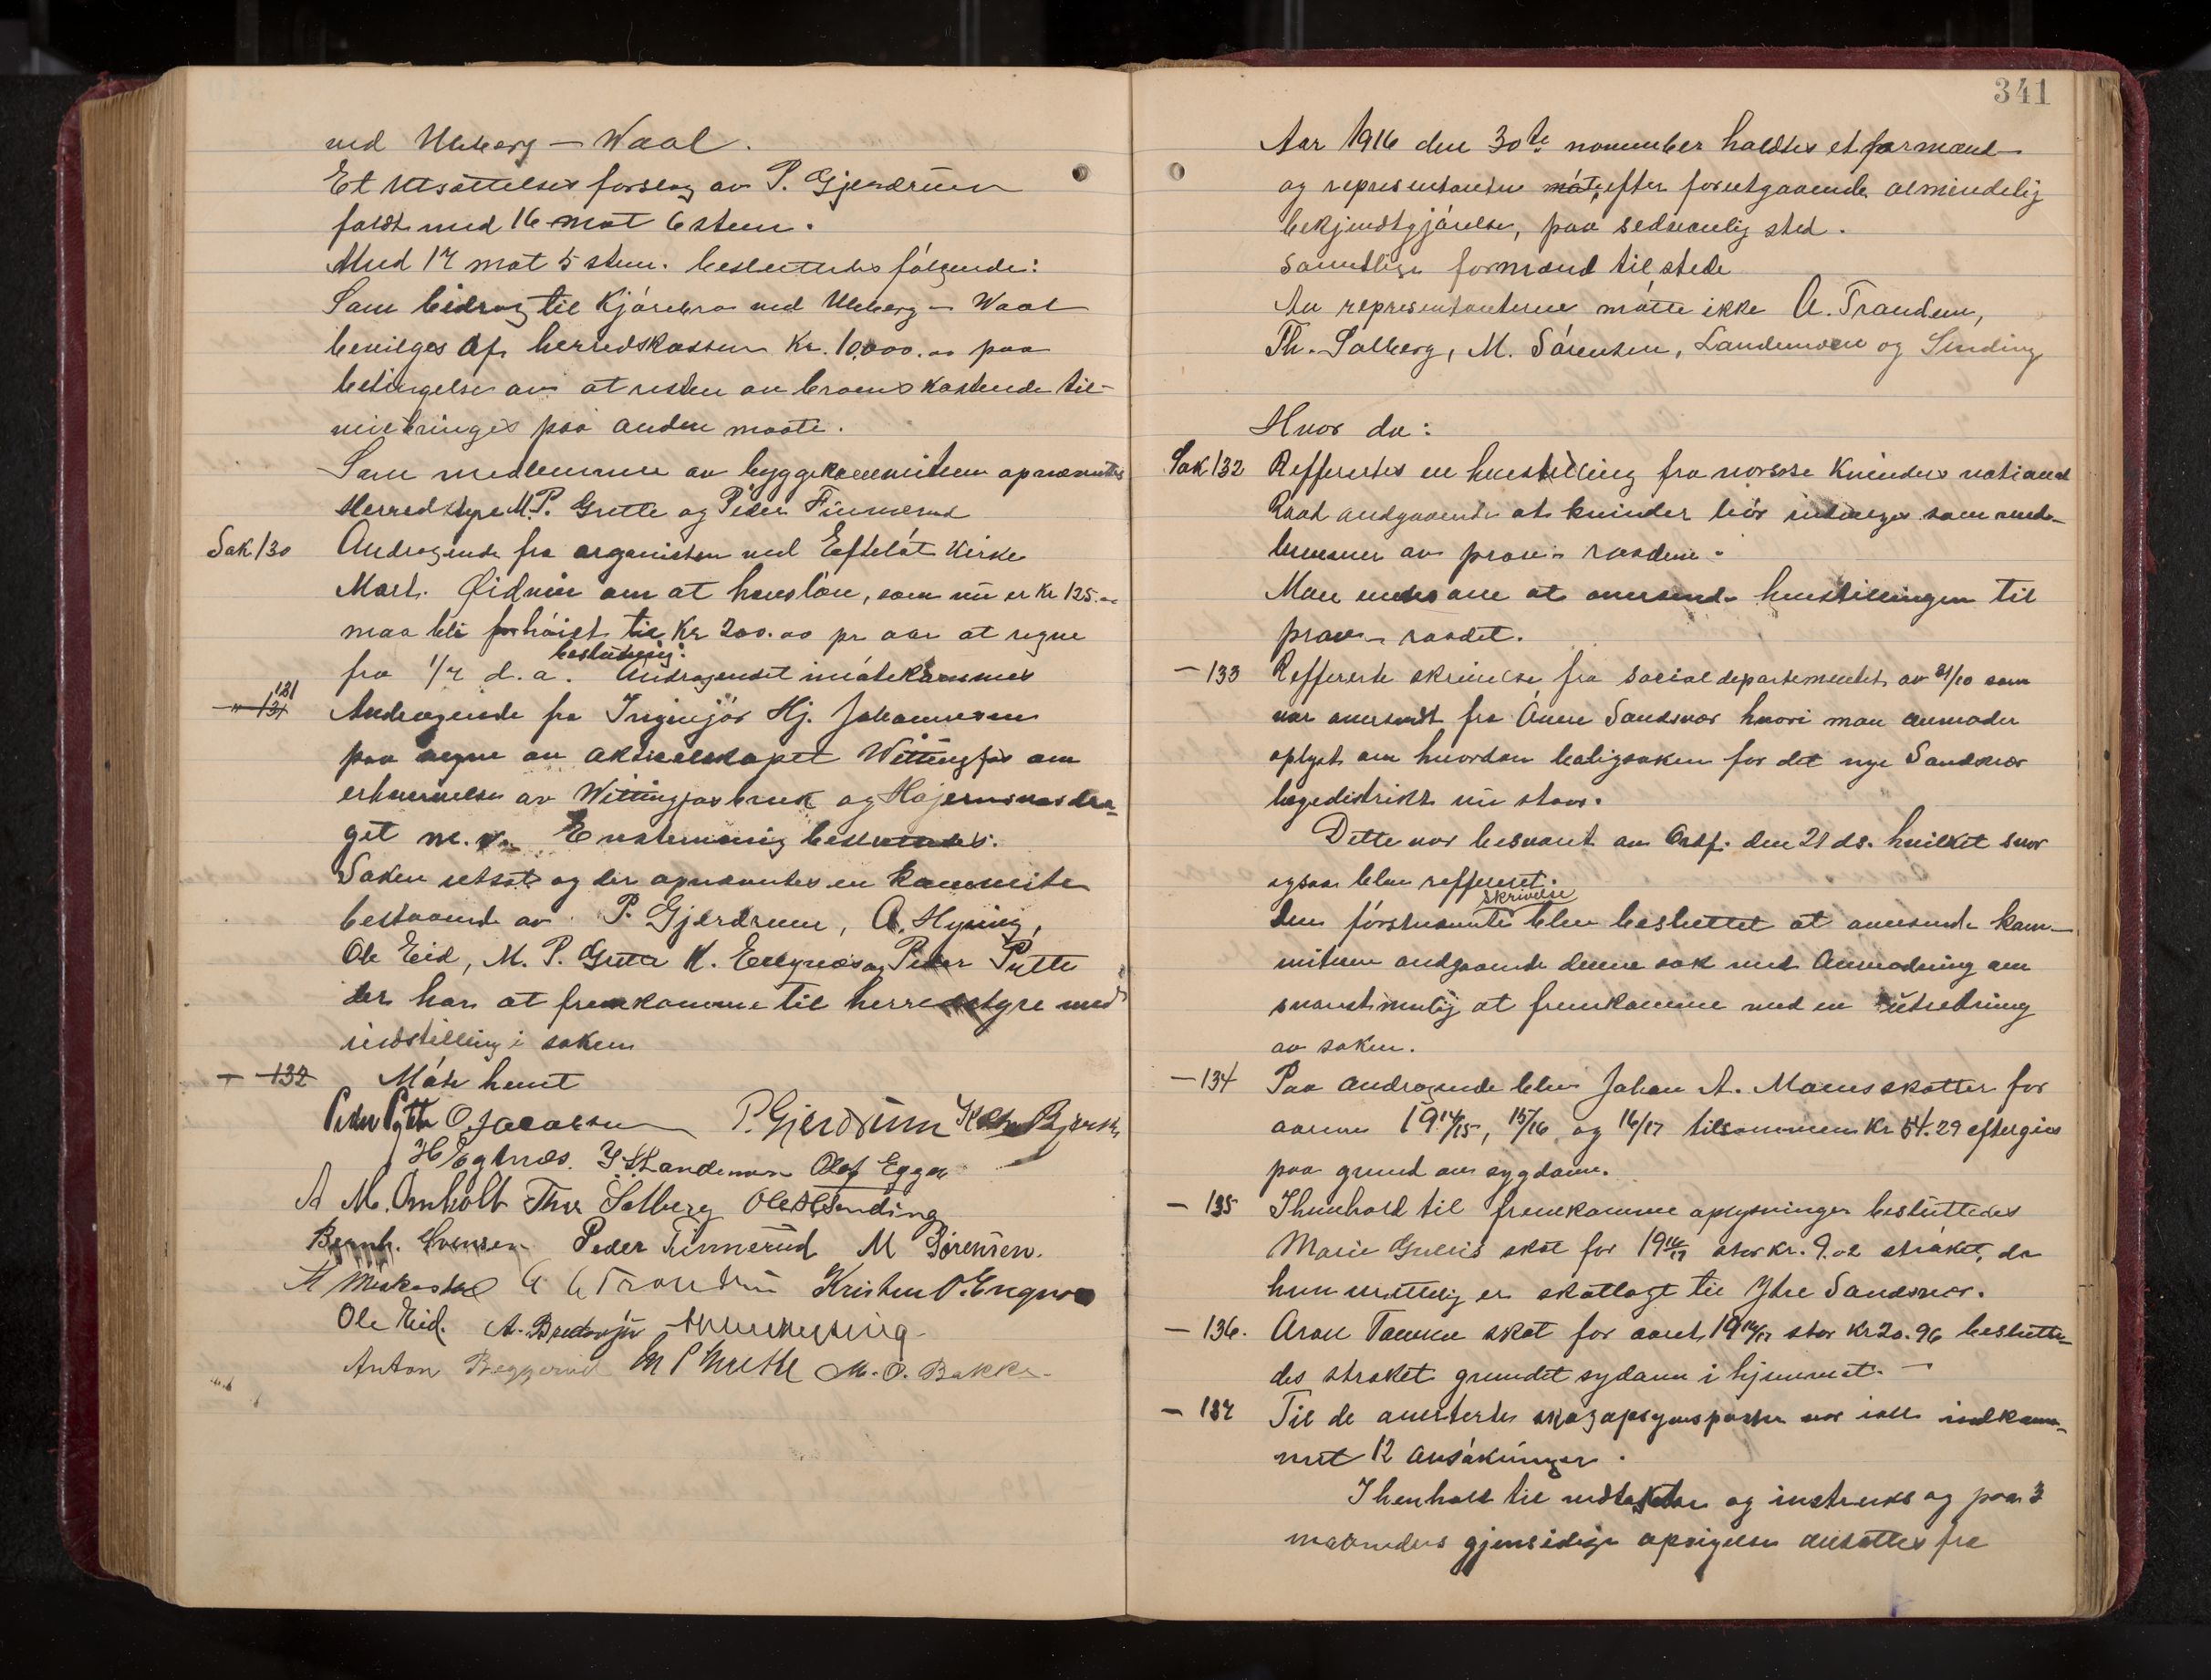 ved Ulleberg – Waal.
Et utsættelses forslag av P. Gjerdrum
faldt med 16 mot 6 stem.
Med 17 mot 5 stem. besluttedes følgende:
Som bidrag til Kjørebro ved Ulleberg – Waal
bevilges af herredskassen Kr. 10,000.00 paa
betingelse av at resten av broens kostende til-
veiebringes paa anden maate.
Som medlemmer av byggekommiteen opnævntes
Herredstyre M. P. Grette og Peder Finnerud
Sak 130 Andragende fra organisten ved Efteløt Kirke
Mart. om at hans løn, som nu er Kr 125.00
maa bli forhøiet til Kr 200.00 pr aar at regne
beslutning:
fra 1/7 d. a. Andragendet imøtekommes
131
– " 131 Andragende fra Ingeniør Hj. Johannesen
paa vegne av aktieselskapet Wittingfos om
erhvervelse av Wittingfos bruk og
get m.v. Enstemmig besluttedes:
Saken utsat og der opnævntes en kommite
bestaaende av P. Gjerdrum, A. Hyning,
Ole Eid, M. P. Grette K. Engnæs og Peder Pytte
der har at fremkomme til herredstyre med
indstilling i saken
– 132 Møte hevet
Peder Pytte O. Jacobsen P. Gjerdrum
H Egtnæs. Landemoen Olaf Eggar
A M. Omholt Thor Solberg Ole H. Sending
Bernh. Svensen Peder Finnerud M Sørensen.
A A Trondem Kristen O. Engnæs
Ole Eid. A. Hyning
Anton M P Grette M. O. Bakke
341
Aar 1916 den 30te november holdtes et formænd-
og representanter møte, efter forutgaaende almindelig
bekjendtgjørelse, paa sedvanlig sted.
samtlige formænd tilstede
Av representanterne møtte ikke A. Trandem,
Th. Solberg, M. Sørensen, Landemoen og Sending
Hvor da:
Sak 132 Refferertes en henstilling fra norske Kvinders national
Raad angaaende at kvinder bør indvælges som med-
lemmer av provi. raadene.
Man enedes om at oversende henstillingen til
prov– raadet.
– 133 Reffererte skrivelse fra Socialdepartementet av 31/10 som
var oversendt fra Øvre Sandsvær hvori man anmoder
oplyst om hvordan boligsaken for det nye Sandsvær
lægedistrikt nu staar.
Dette var besvaret av Ordf. den 21 ds. hvilket svar
ogsaa blev refferert.
skrivelse
den førstnævnte blev besluttet at oversende kom-
miteen angaaende denne sak med Anmodning om
snarest mulig at fremkomme med en utredning
av saken.
– 134 Paa andragende blev Johan A. Moens skatter for
aarene 1914/15, 15/16 og 16/17 tilsammen Kr 54.29 eftergit
paa grund av sygdom.
– 135 I henhold til fremkomne oplysninger besluttedes
Marie skat for 1916/17 stor Kr. 9.02 strøket, da
hun rettelig er skatlagt til Ytre Sandsvær.
– 136. Aron skat for aaret 1916/17 stor Kr 20.96 beslutte-
des strøket grundet sydom i hjemmet. –
– 137 Til de averterte skogopsynsposter var ialt indkom-
met 12 ansøkninger.
I henhold til vedtekter og instruks og paa 3
maaneders gjensidige opsigelse ansattes fra